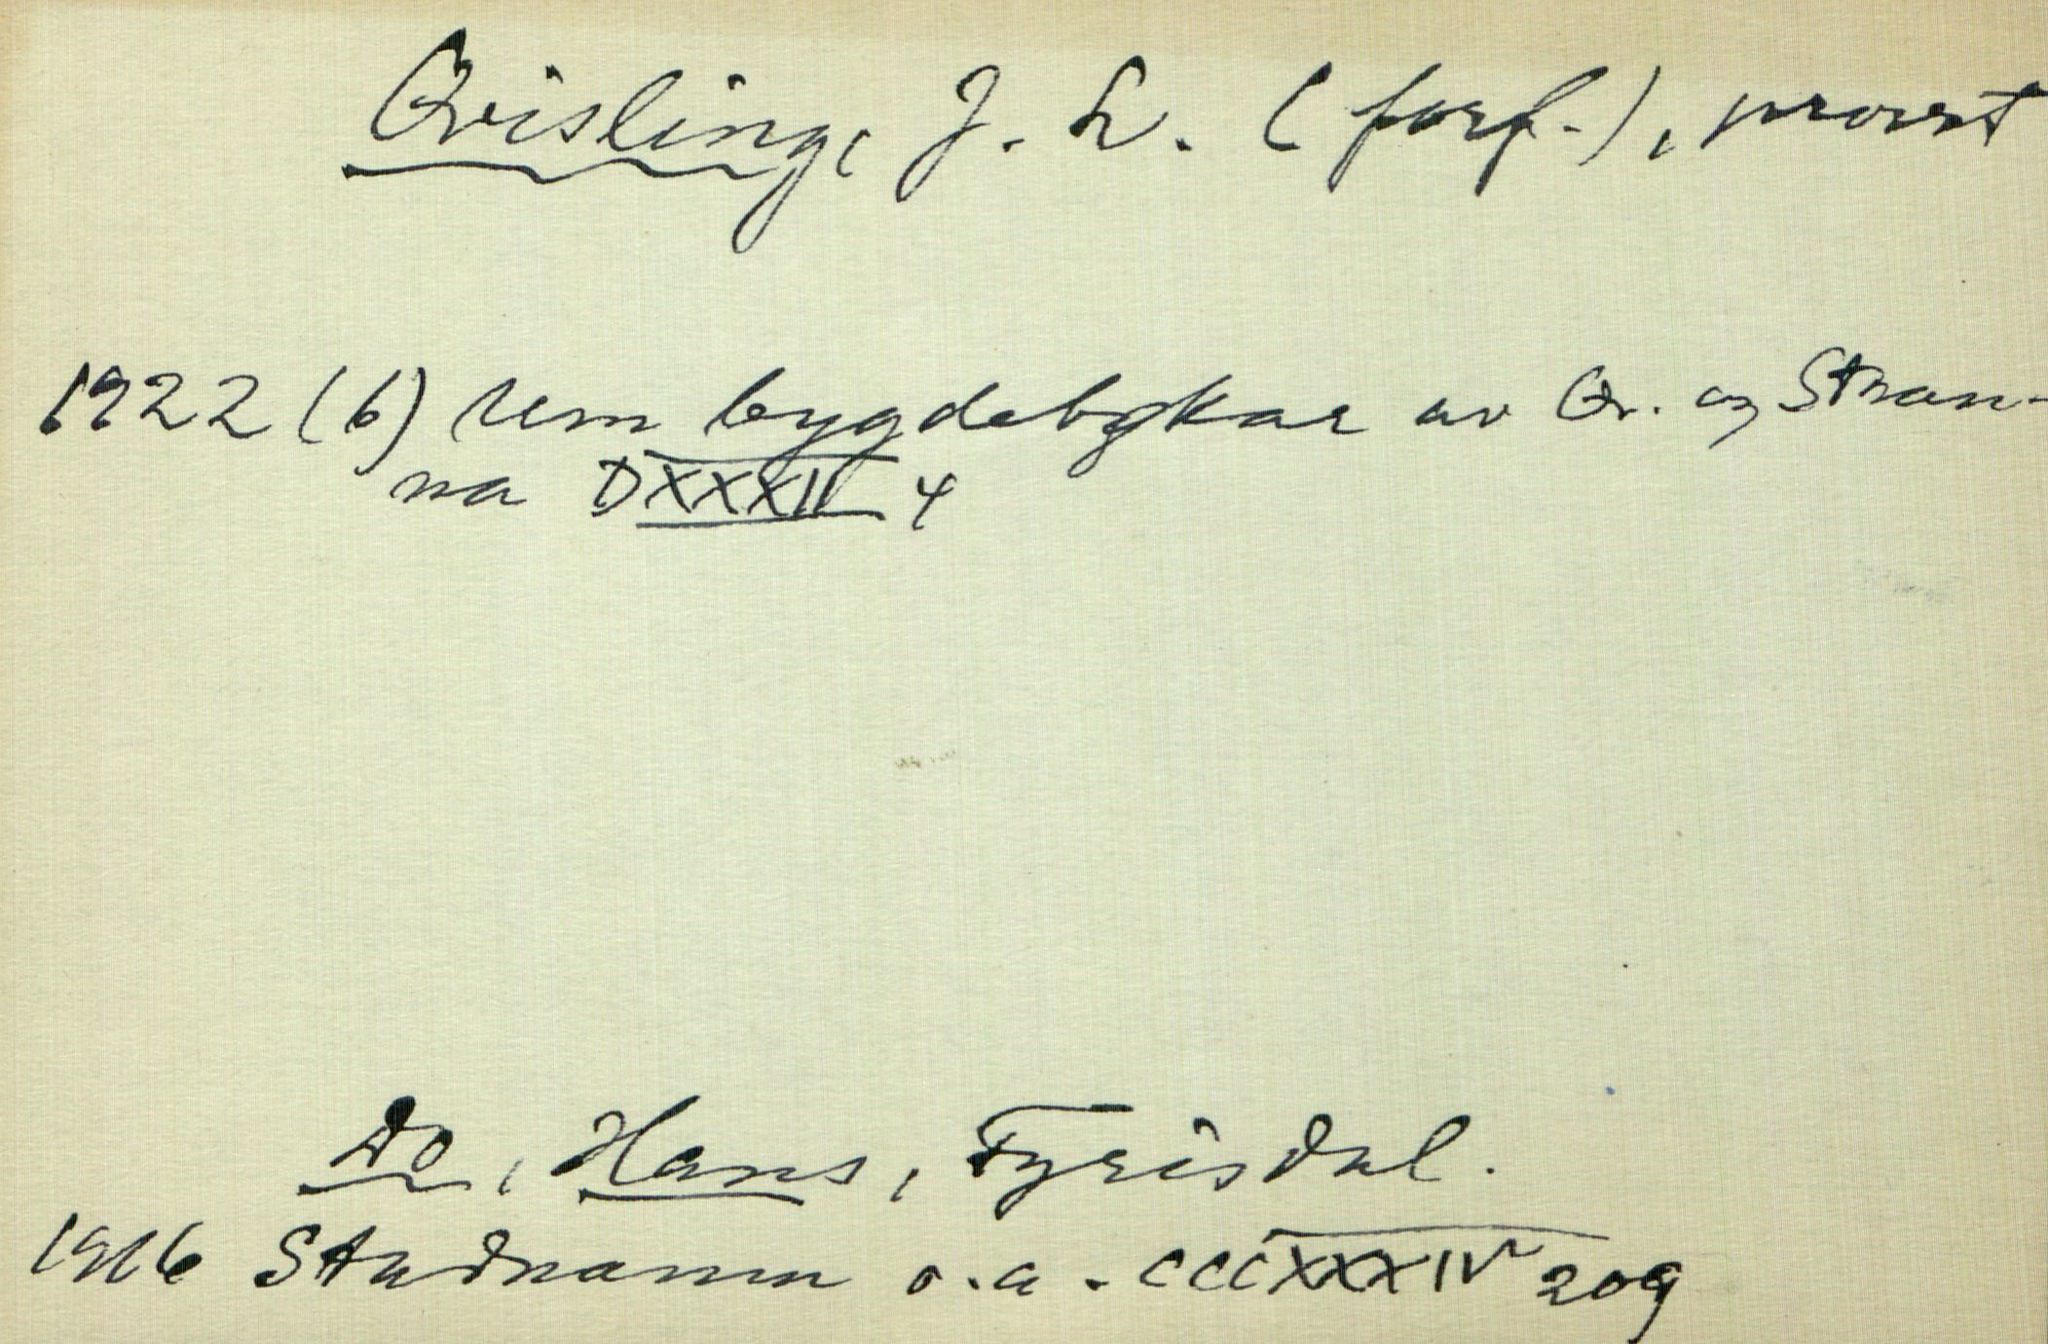 Qvisling, J. L. (forf.), prost
1922 (b) Um bygdebøkar av Qv. og Stran-
na DXXXII 4
Do, Hans, Fyrisdal.
1916 Stadnamn o.a. CCCXXXIV 209